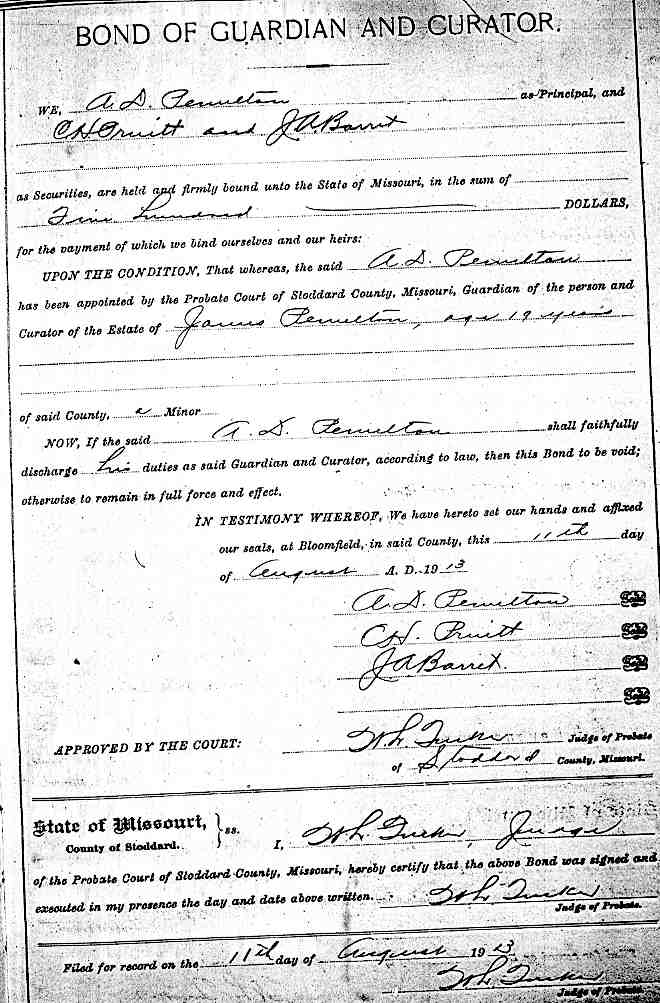 BOND OF GUARDIAN AND CURATOR.
WE, A. D. Pemelton as Principal, and
C H Pruitt and J A Barret
as Securities, are held and firmly bound unto the State of Missouri, in the sum of
Five Hundred DOLLARS,
for the payment of which we bind ourselves and our heirs:
UPON THE CONDITION, That whereas, the said A. D. Pemelton
has been appointed by the Probate Court of Stoddard County, Missouri, Guardian of the person and
Curator of the Estate of James Pemelton, age 19 years
of said County, a Minor
NOW, If the said A. D. Pemelton shall faithfully
discharge his duties as said Guardian and Curator, according to law, then this Bond to be void;
otherwise to remain in full force and effect.
IN TESTIMONY WHEREOF, We have hereto set our hands and affixed
our seals, at Bloomfield, in said County, this 11th day
of August A. D. 1913
A. D. Pemelton Seal
C H. Pruitt Seal
J A Barret. Seal
Seal
APPROVED BY THE COURT: W L Tucker Judge of Probate
of Stoddard County, Missouri.
State of Missouri, } ss.
County of Stoddard. I, W L Tucker, Judge
of the Probate Court of Stoddard County, Missouri, hereby certify that the above Bond was signed and
executed in my presence the day and date above written. W L Tucker
Judge of Probate.
Filed for record on the 11th day of August 1913
W L Tucker
Judge of Probate.